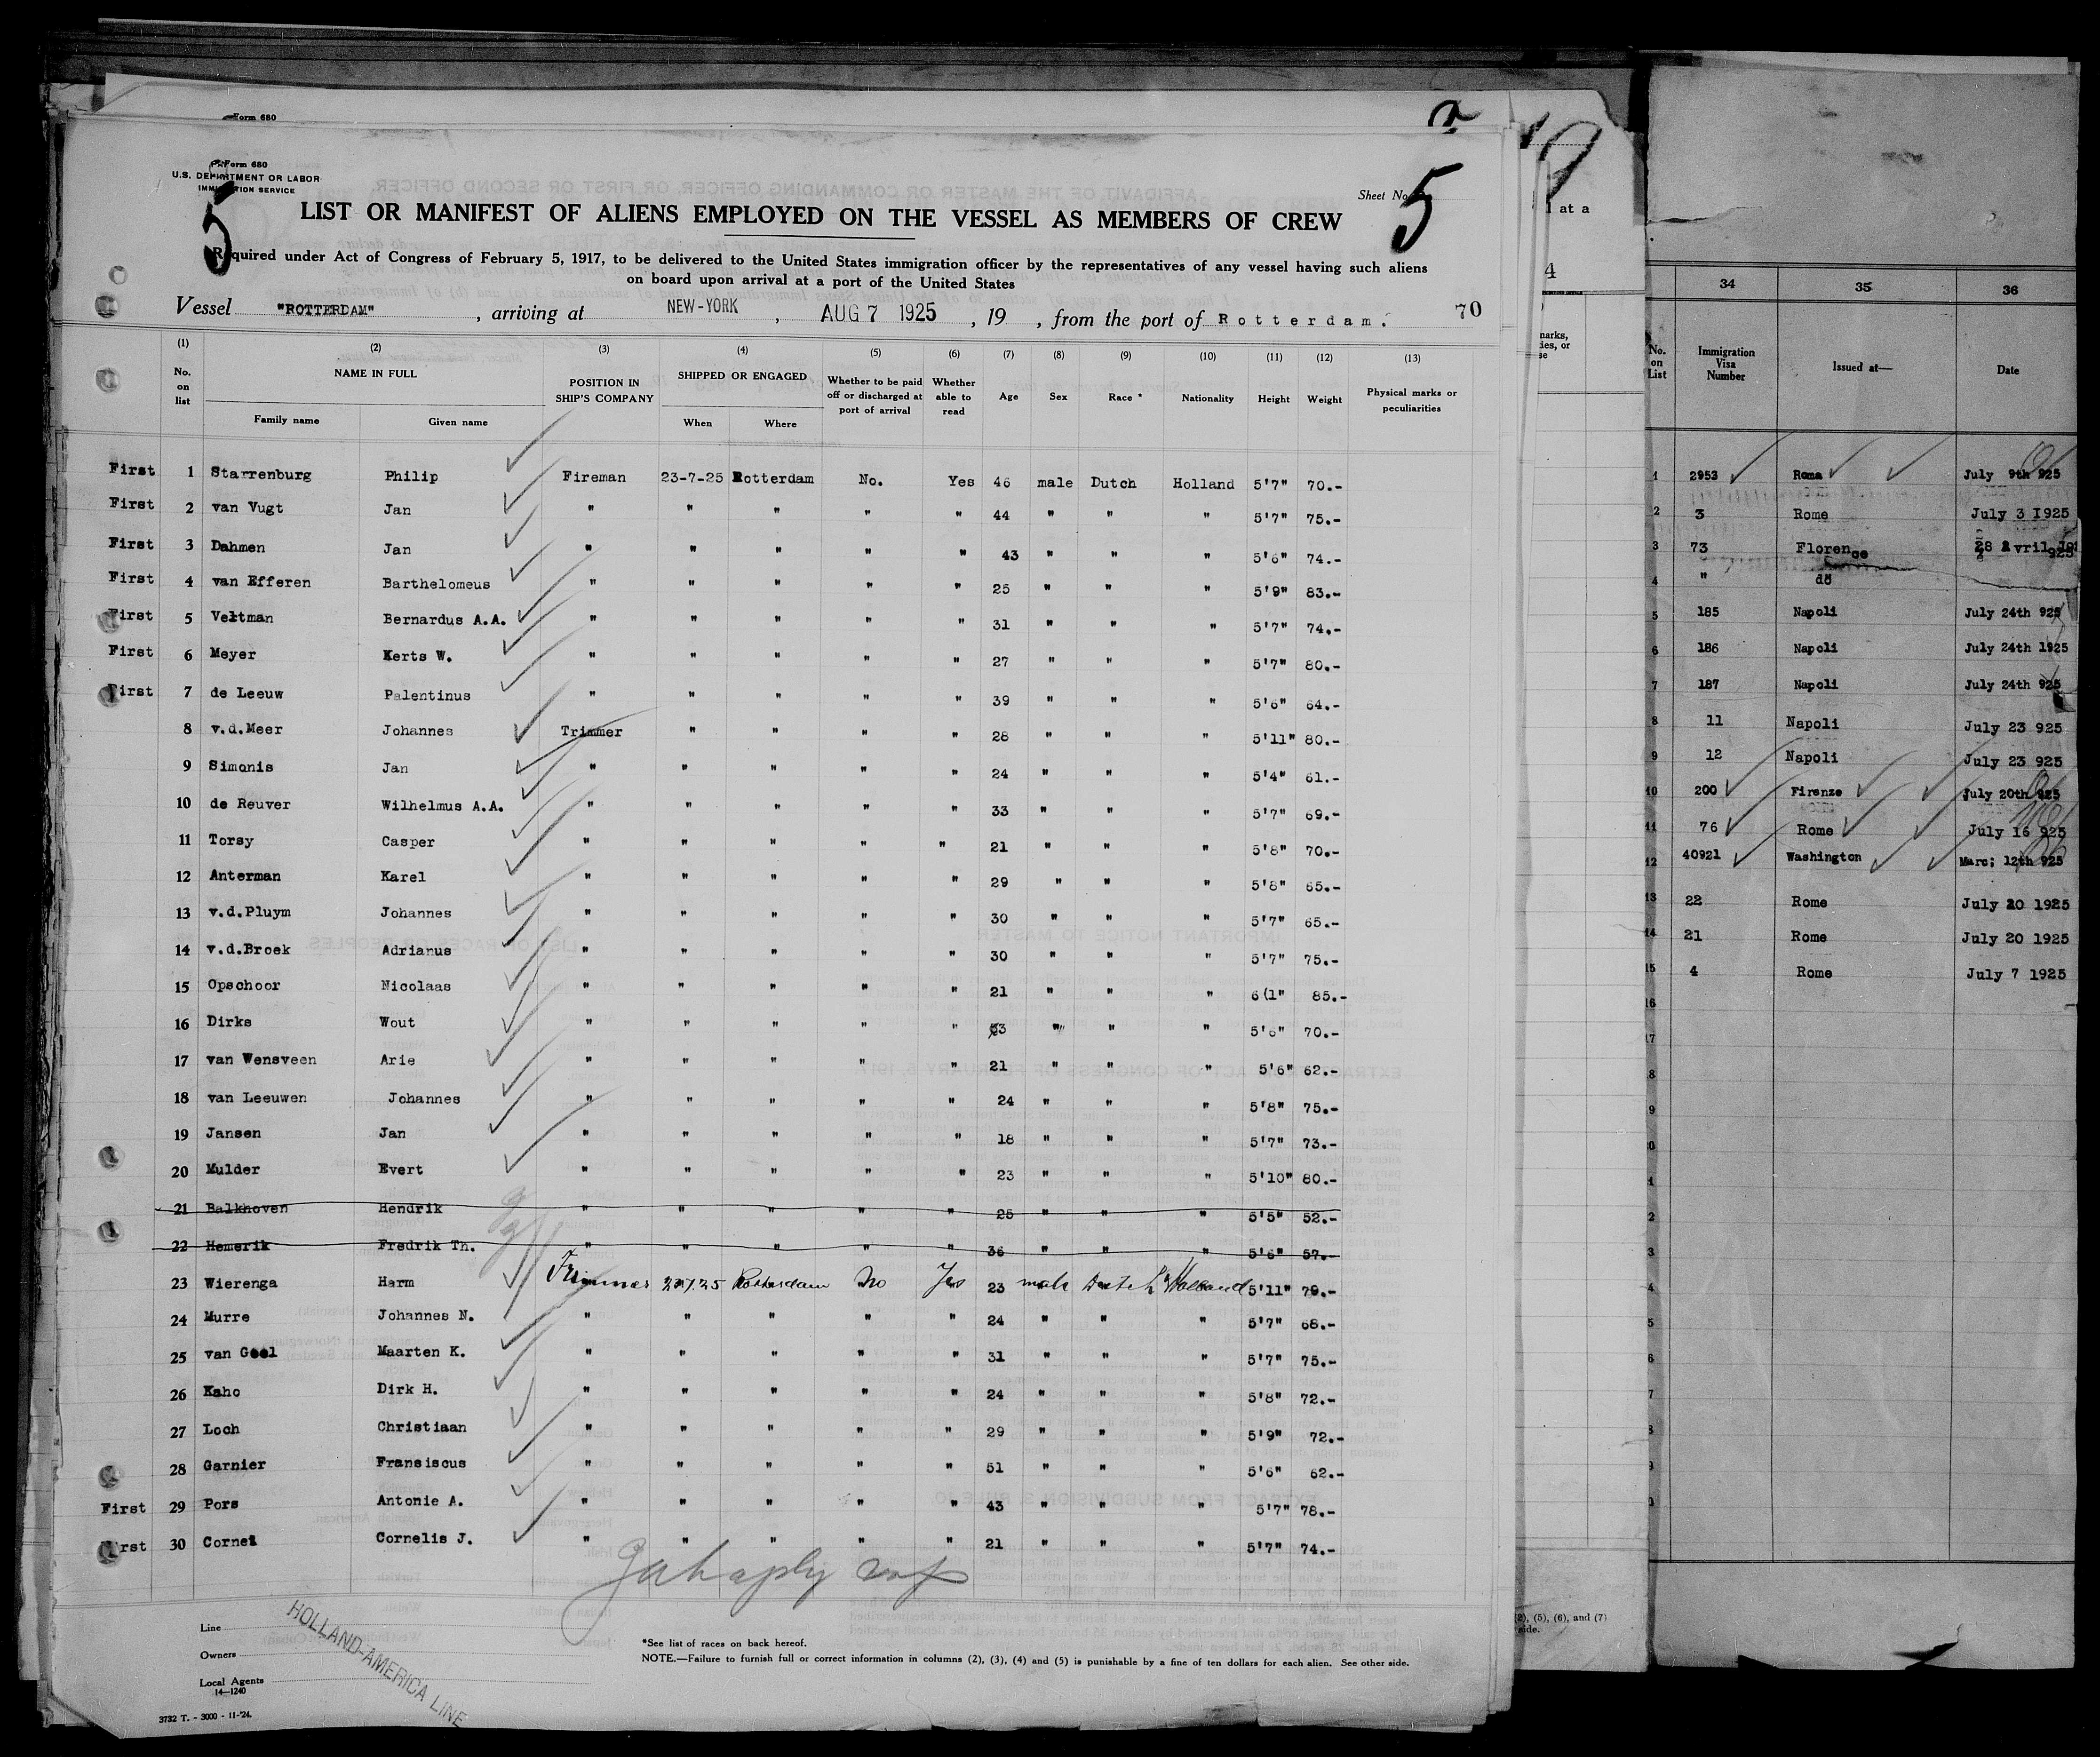 Form 680
Form 680
U.S. DEPARTMENT OR LABOR
IMMIGRATION SERVICE
Sheet No. 5
5
LIST OR MANIFEST OF ALIENS EMPLOYED ON THE VESSEL AS MEMBERS OF CREW
Required under Act of Congress of February 5, 1917, to be delivered to the United States immigration officer by the representatives of any vessel having such aliens
on board upon arrival at a port of the United States
Vessel "ROTTERDAM", arriving at NEW-YORK, AUG 7 1925, 19 , from the port of Rotterdam. 70
(1) (2) (3) (4) (5) (6) (7) (8) (9) (10) (11) (12) (13)
No. on list NAME IN FULL Family name Given name POSITION IN SHIP'S COMPANY SHIPPED OR ENGAGED When Where Whether to be paid off or discharged at port of arrival Whether able to read Age Sex Race * Nationality Height Weight Physical marks or peculiarities
First 1 Starrenburg Philip Fireman 23-7-25 Rotterdam No. Yes 46 male Dutch Holland 5'7" 70.-
First 2 van Vugt Jan " " " " " 44 " " " 5'7" 75.-
First 3 Dahmen Jan " " " " " 43 " " " 5'6" 74.-
First 4 van Efferen Barthelomeus " " " " " 25 " " " 5'9" 83.-
First 5 Veltman Bernardus A.A. " " " " " 31 " " " 5'7" 74.-
First 6 Meyer Kerts W. " " " " " 27 " " " 5'7" 80.-
First 7 de Leeuw Palentinus " " " " " 39 " " " 5'6" 64.-
8 v.d.Meer Johannes Trimmer " " " " 28 " " " 5'11" 80.-
9 Simonis Jan " " " " " 24 " " " 5'4" 61.-
10 de Reuver Wilhelmus A.A. " " " " " 33 " " " 5'7" 69.-
11 Torsy Casper " " " " " 21 " " " 5'8" 70.-
12 Anterman Karel " " " " " 29 " " " 5'8" 65.-
13 v.d.Pluym Johannes " " " " " 30 " " " 5'7" 65.-
14 v.d.Broek Adrianus " " " " " 30 " " " 5'7" 75.-
15 Opschoor Nicolaas " " " " " 21 " " " 6(1" 85.-
16 Dirks Wout " " " " " " " " 5'6" 70.-
17 van Wensveen Arie " " " " " 21 " " " 5'6" 62.-
18 van Leeuwen Johannes " " " " " 24 " " " 5'8" 75.-
19 Jansen Jan " " " " " 18 " " " 5'7" 73.-
20 Mulder Evert " " " " " 23 " " " 5'10" 80.-
21 Balkhoven Hendrik " " " " " 25 " " " 5'5" 52.-
22 Hemerik Fredrik Th. " " " " " 36 " " " 5'6" 57.-
23 Wierenga Harm Trimmer 23.7.25 Rotterdam No Yes 23 male Dutch Holland 5'11" 79.-
24 Murre Johannes N. " " " " " 24 " " " 5'7" 68.-
25 van Gool Maarten K. " " " " " 31 " " " 5'7" 75.-
26 Kaho Dirk H. " " " " " 24 " " " 5'8" 72.-
27 Loch Christiaan " " " " " 29 " " " 5'9" 72.-
28 Garnier Fransiscus " " " " " 51 " " " 5'6" 62.-
First 29 Pors Antonie A. " " " " " 43 " " " 5'7" 78.-
First 30 Cornet Cornelis J. " " " " " 21 " " " 5'7" 74.-
Line
Owners
Local Agents
14—1240
HOLLAND-AMERICA LINE
*See list of races on back hereof.
NOTE.—Failure to furnish full or correct information in columns (2), (3), (4) and (5) is punishable by a fine of ten dollars for each alien. See other side.
3732 T. - 3000 - 11-'24.
at a
4
(2), (5), (6), and (7)
side.
34 35 36
No. on List Immigration Visa Number Issued at— Date
1 2953 Roma July 9th 925
2 3 Rome July 3 1925
3 73 Florence 28 Avril 925
4 " do
5 185 Napoli July 24th 925
6 186 Napoli July 24th 1925
7 187 Napoli July 24th 925
8 11 Napoli July 23 925
9 12 Napoli July 23 925
10 200 Firenze July 20th 925
11 76 Rome July 16 925
12 40921 Washington Marc; 12th 925
13 22 Rome July 20 1925
14 21 Rome July 20 1925
15 4 Rome July 7 1925
16